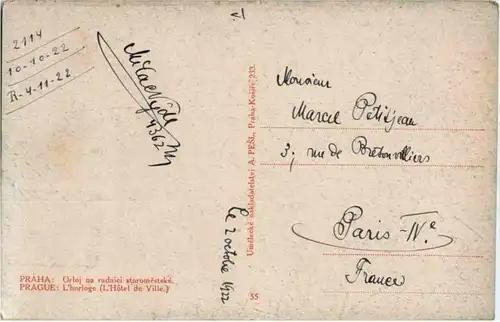 V.
2114
10-10-22
R-4-11-22
7362
Le 2 octobre 1922
Umělecké nakladatelství A. PEŠL, Praha-Košíř. 233.
Monsieur
Marcel Petitjean
3, rue de Bretonvilliers
Paris-IVe
France
PRAHA: Orloj na radnici staroměstské.
PRAGUE: L'horloge (L'Hôtel de Ville.)
55